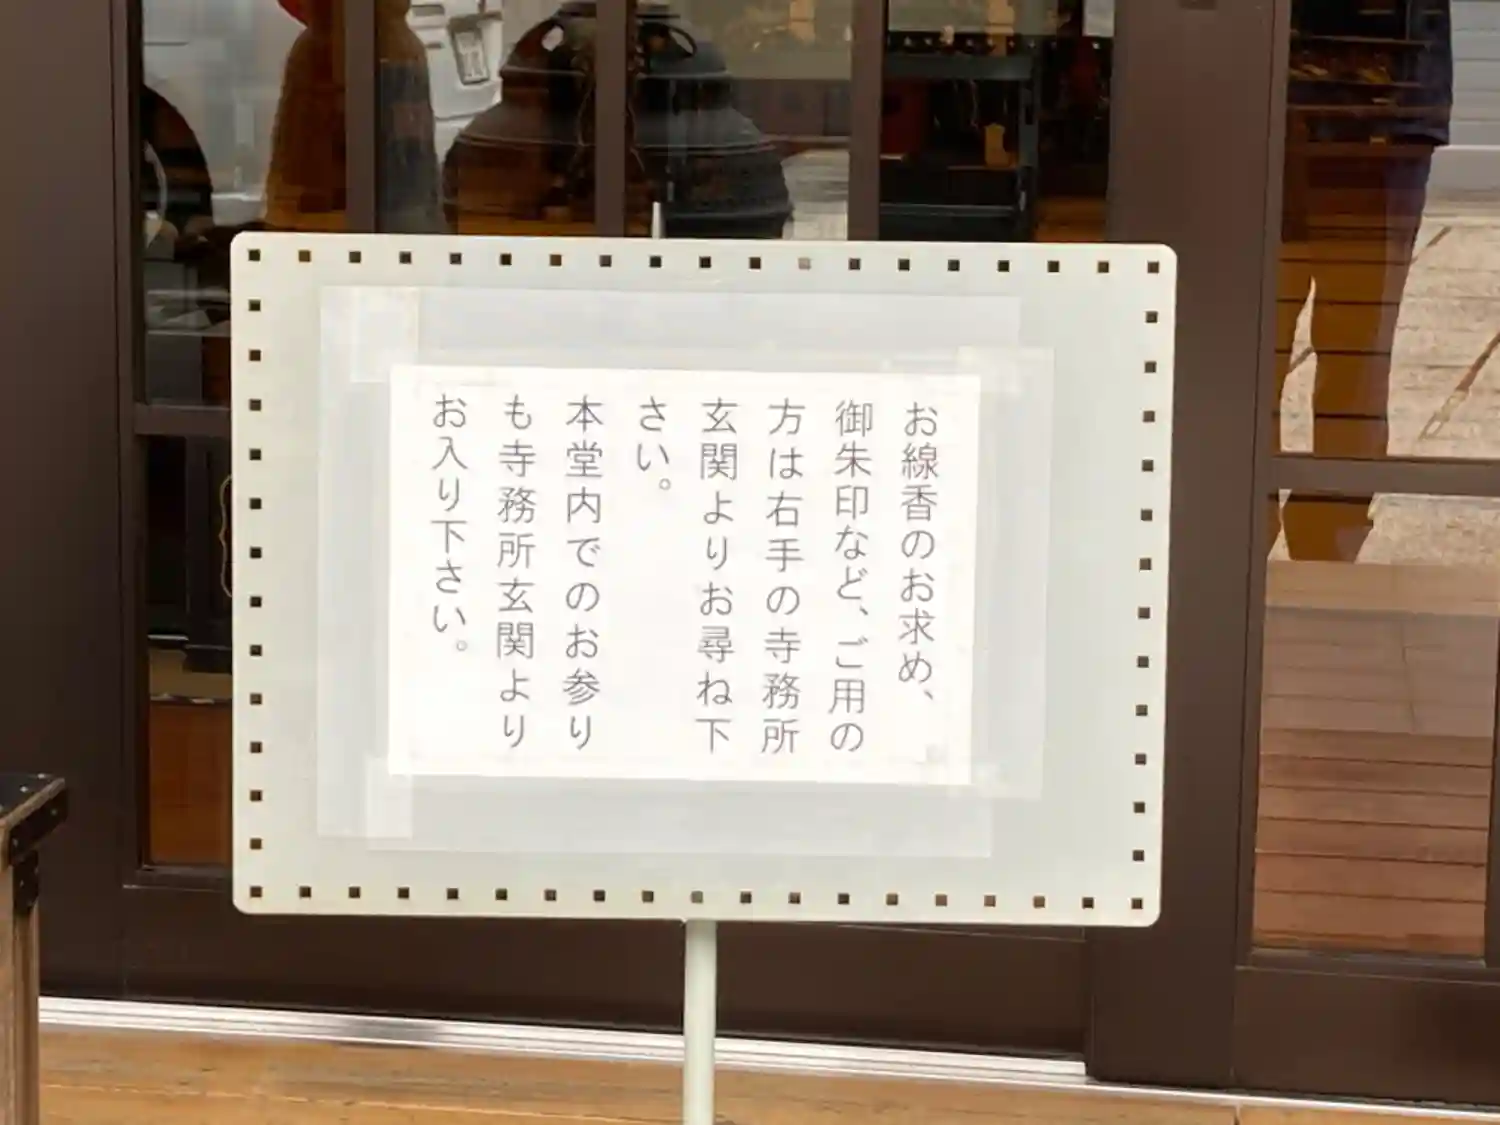 お線香のお求め、
御朱印など、ご用の
方は右手の寺務所
玄関よりお尋ね下
さい。
本堂内でのお参り
も寺務所玄関より
お入り下さい。